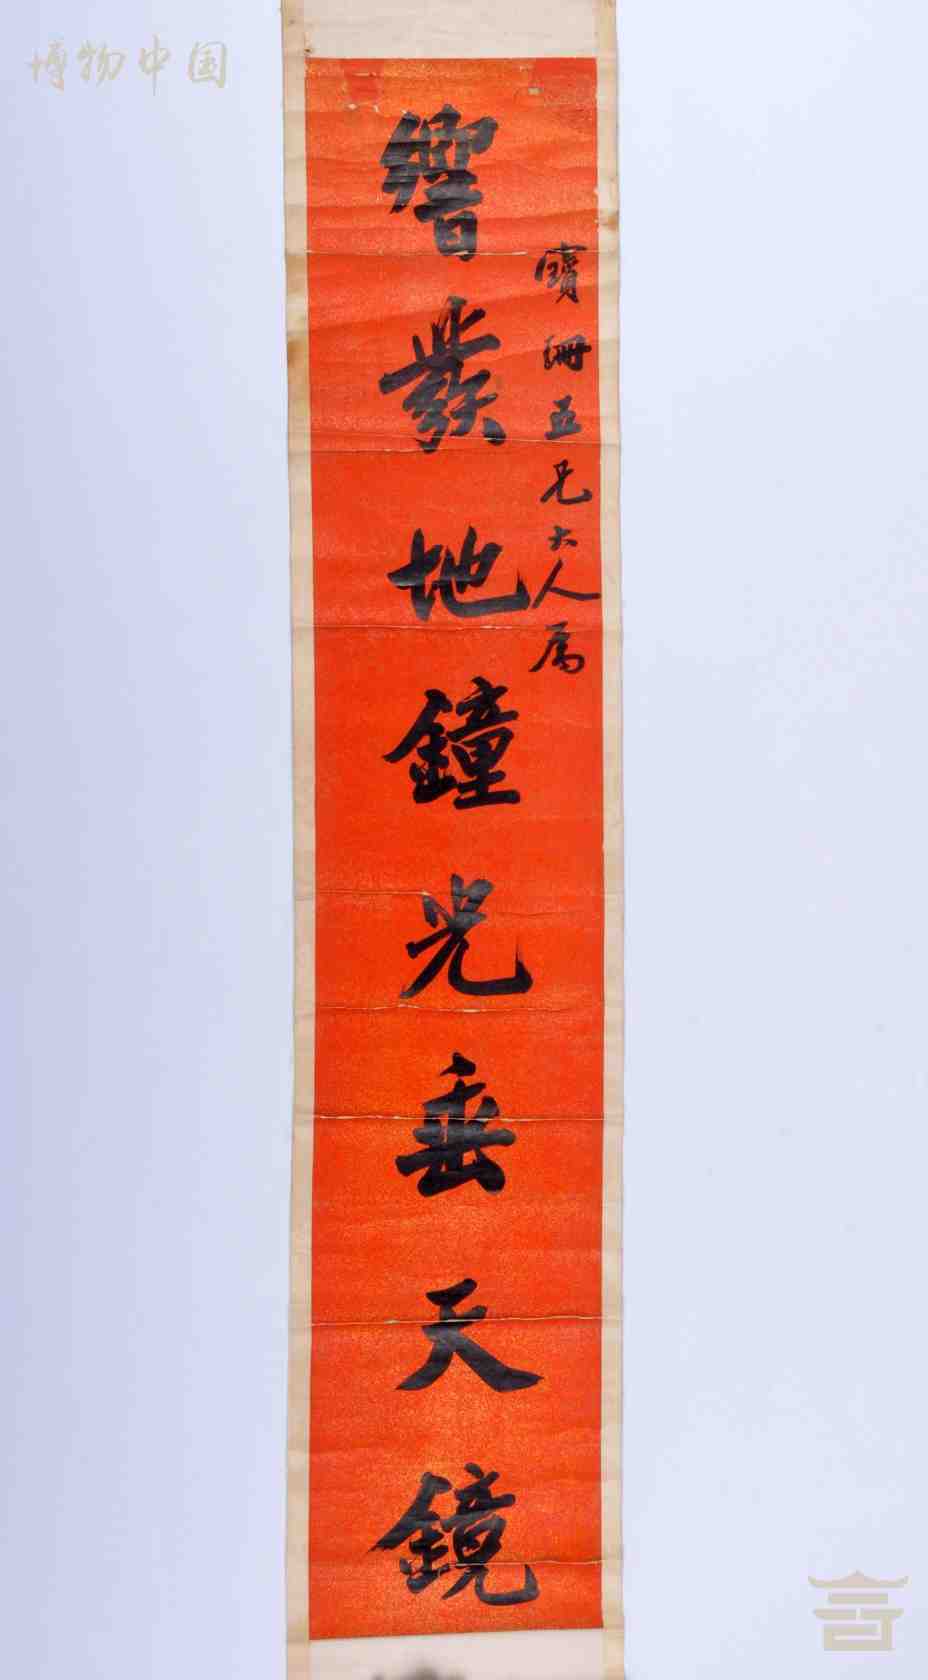 博物中国
寶珊五兄大人属
響發地鐘光垂天鏡